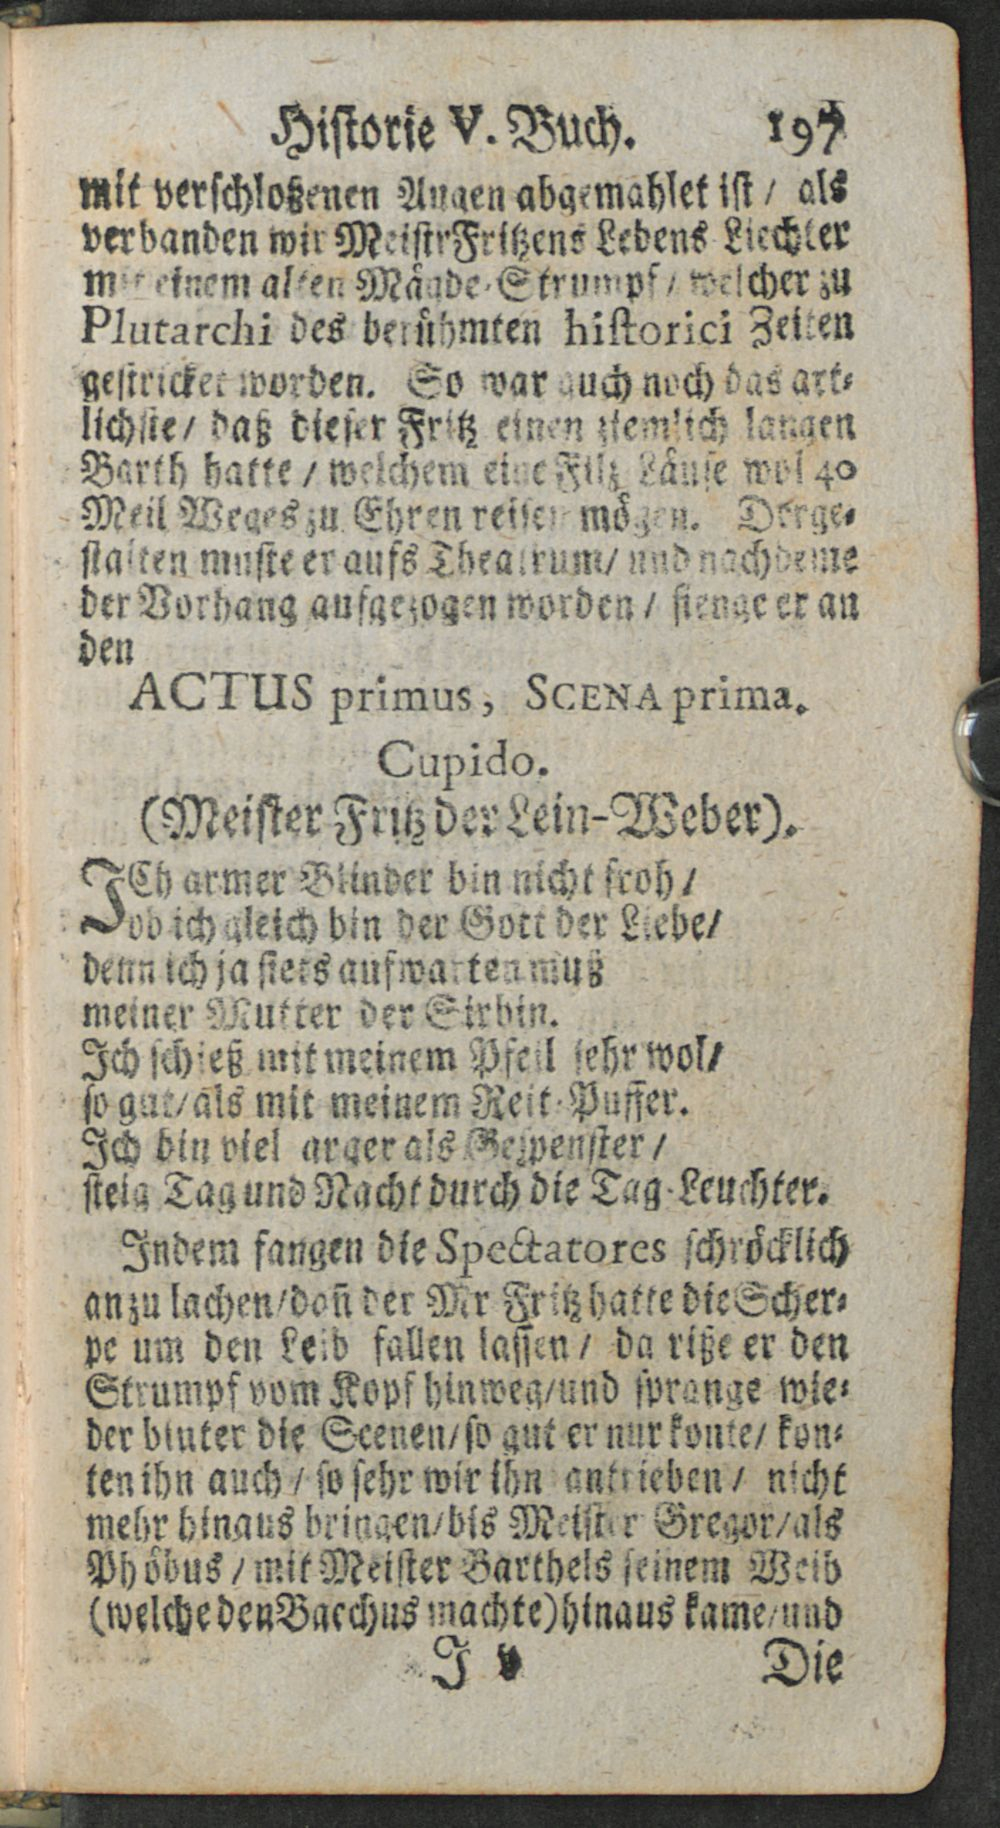 Historie V. Buch. 197
mit verschloßenen Augen abgemahlet ist / als
verbanden wir Meistr Fritzens Lebens-Liechter
mit einem alten Mägde-Strumpf / welcher zu
Plutarchi des berühmten historici Zeiten
gestricket worden. So war auch noch das art-
lichste / daß dieser Fritz einen ziemlich langen
Barth hatte / welchem eine Filz Läuse wol 40
Meil Weges zu Ehren reisen mögen. Derge-
stalten muste er aufs Theatrum / und nachdeme
der Vorhang aufgezogen worden / fienge er an
den
ACTUS primus, SCENA prima.
Cupido.
(Meister Fritz der Lein-Weber).
ICh armer Blinder bin nicht froh /
ob ich gleich bin der Gott der Liebe /
denn ich ja stets aufwarten muß
meiner Mutter der Sirbin.
Ich schieß mit meinem Pfeil sehr wol /
so gut / als mit meinem Reit-Puffer.
Ich bin viel arger als Gespenster /
steig Tag und Nacht durch die Tag-Leuchter.
Indem fangen die Spectatores schröcklich
an zu lachen / dañ der Mr Fritz hatte die Scher-
pe um den Leib fallen lassen / da riße er den
Strumpf vom Kopf hinweg / und sprange wie-
der hinter die Scenen / so gut er nur konte / kon-
ten ihn auch / so sehr wir ihn antrieben / nicht
mehr hinaus bringen / bis Meister Gregor / als
Phöbus / mit Meister Barthels seinem Weib
(welche den Bacchus machte) hinaus kame / und
I v Die